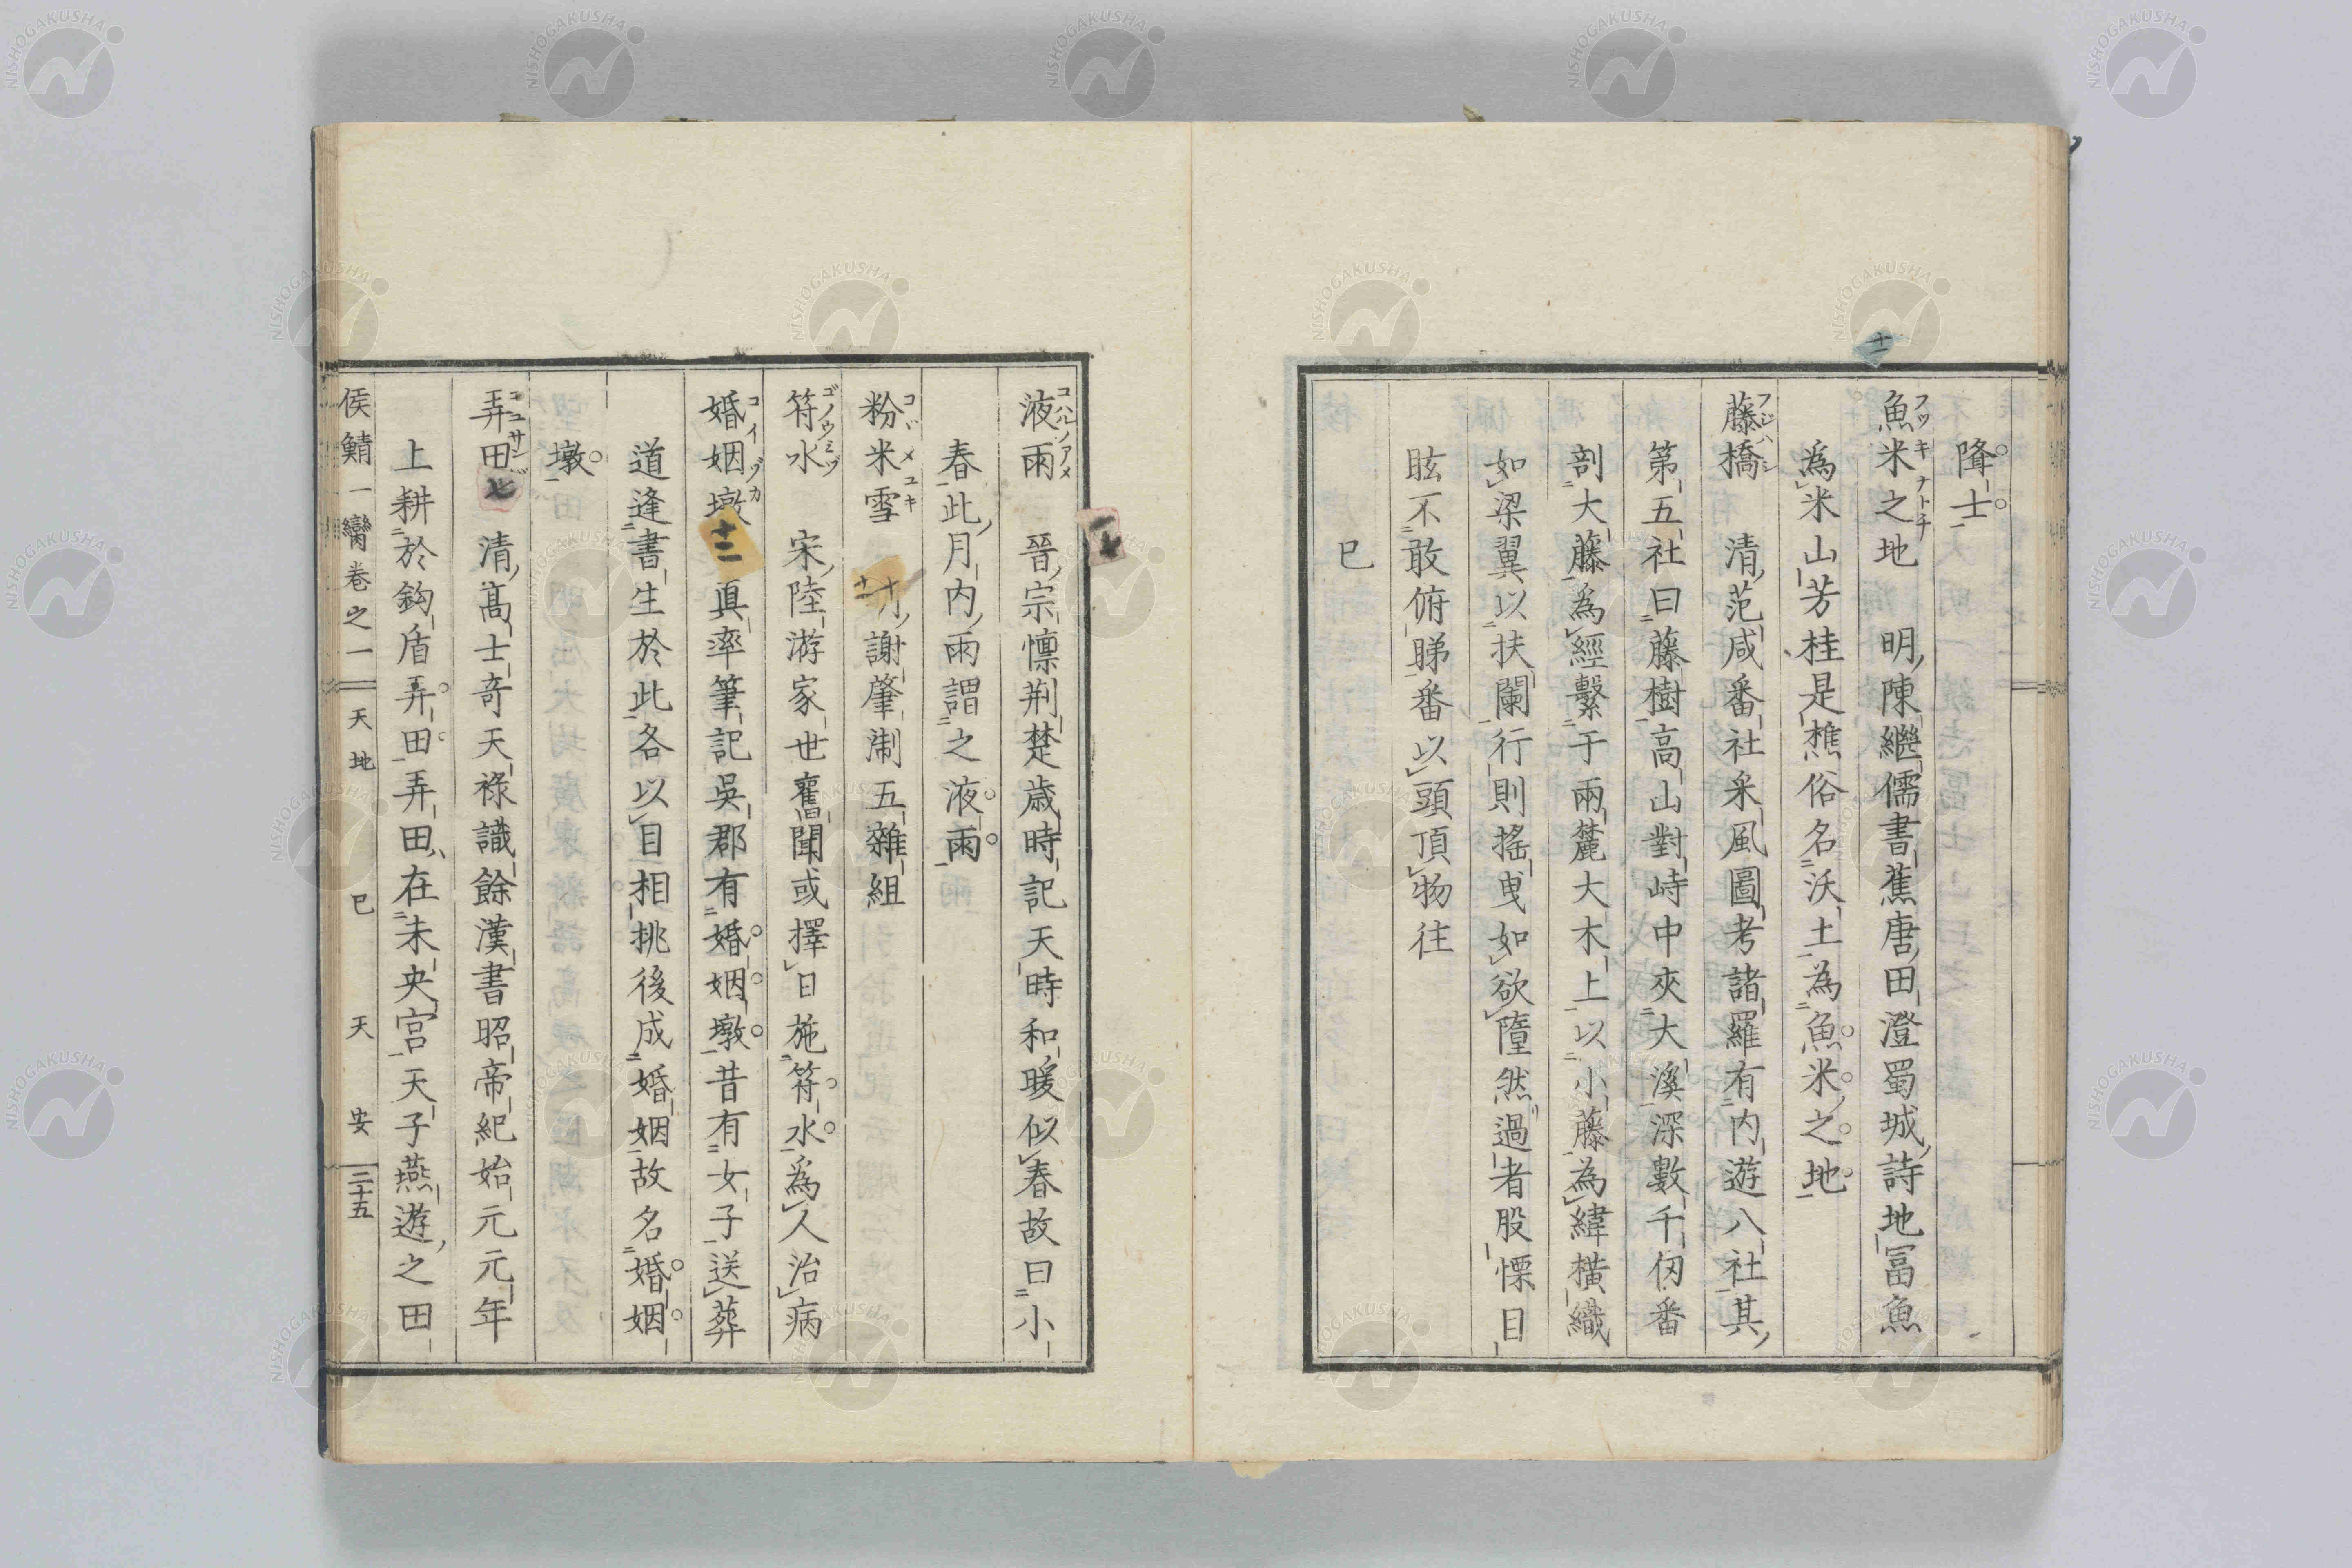 降士
魚米之地　明陳繼儒書蕉唐田澄蜀城詩地冨魚
為米山芳桂是樵俗名沃土為魚米之地
藤橋　清范咸番社采風圖考諸羅有内遊八社其
第五社曰藤樹高山對峙中夾大溪深數千仭番
剖大藤為經繫于兩麓大木上以小藤為緯橫織
如梁翼以扶闌行則搖曳如欲墮然過者股慄目
眩不敢俯睇番以頭頂物往
巳
十二
一七
液雨　晉宗懍荆楚歳時記天時和暖似春故曰小
コハルノアメ
春此月内雨謂之液雨
粉米雪　謝肇淛五雜組
コバメユキ
符水　宋陸游家世舊聞或擇日施符水爲人治病
ゴノウミヅ
婚姻墩　眞率筆記吳郡有婚姻墩昔有女子送葬
コイヅカ
十二
道逢書生於此各以目相挑後成婚姻故名婚姻
墩
弄田　清髙士奇天祿識餘漢書昭帝紀始元元年
七
上耕於鈎盾弄田弄田在未央宮天子燕遊之田
侯鯖一臠卷之一　天地　巳　天　安　三十五
NISHOGAKUSHA